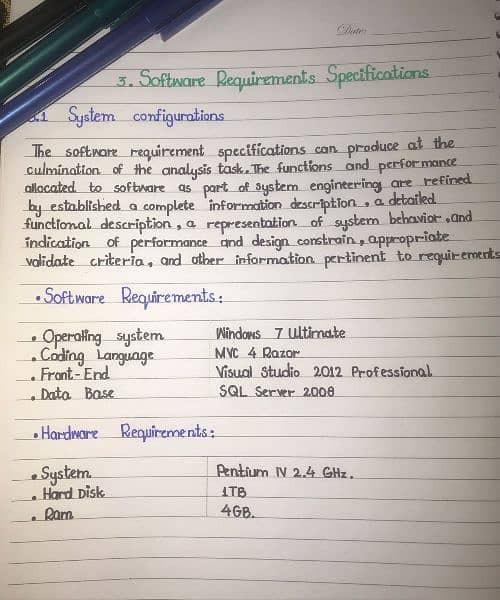 Date:
3. Software Requirements Specifications
.1 System configurations
The software requirement specifications can produce at the
culmination of the analysis task. The functions and performance
allocated to software as part of system engineering are refined
by established a complete information description, a detailed
functional description, a representation of system behavior, and
indication of performance and design constrain, appropriate
validate criteria, and other information pertinent to requirements
• Software Requirements:
• Operating system Windows 7 Ultimate
• Coding Language MVC 4 Razor
• Front-End Visual Studio 2012 Professional
• Data Base SQL Server 2008
• Hardware Requirements:
• System Pentium IV 2.4 GHz.
• Hard Disk 1TB
• Ram 4GB.